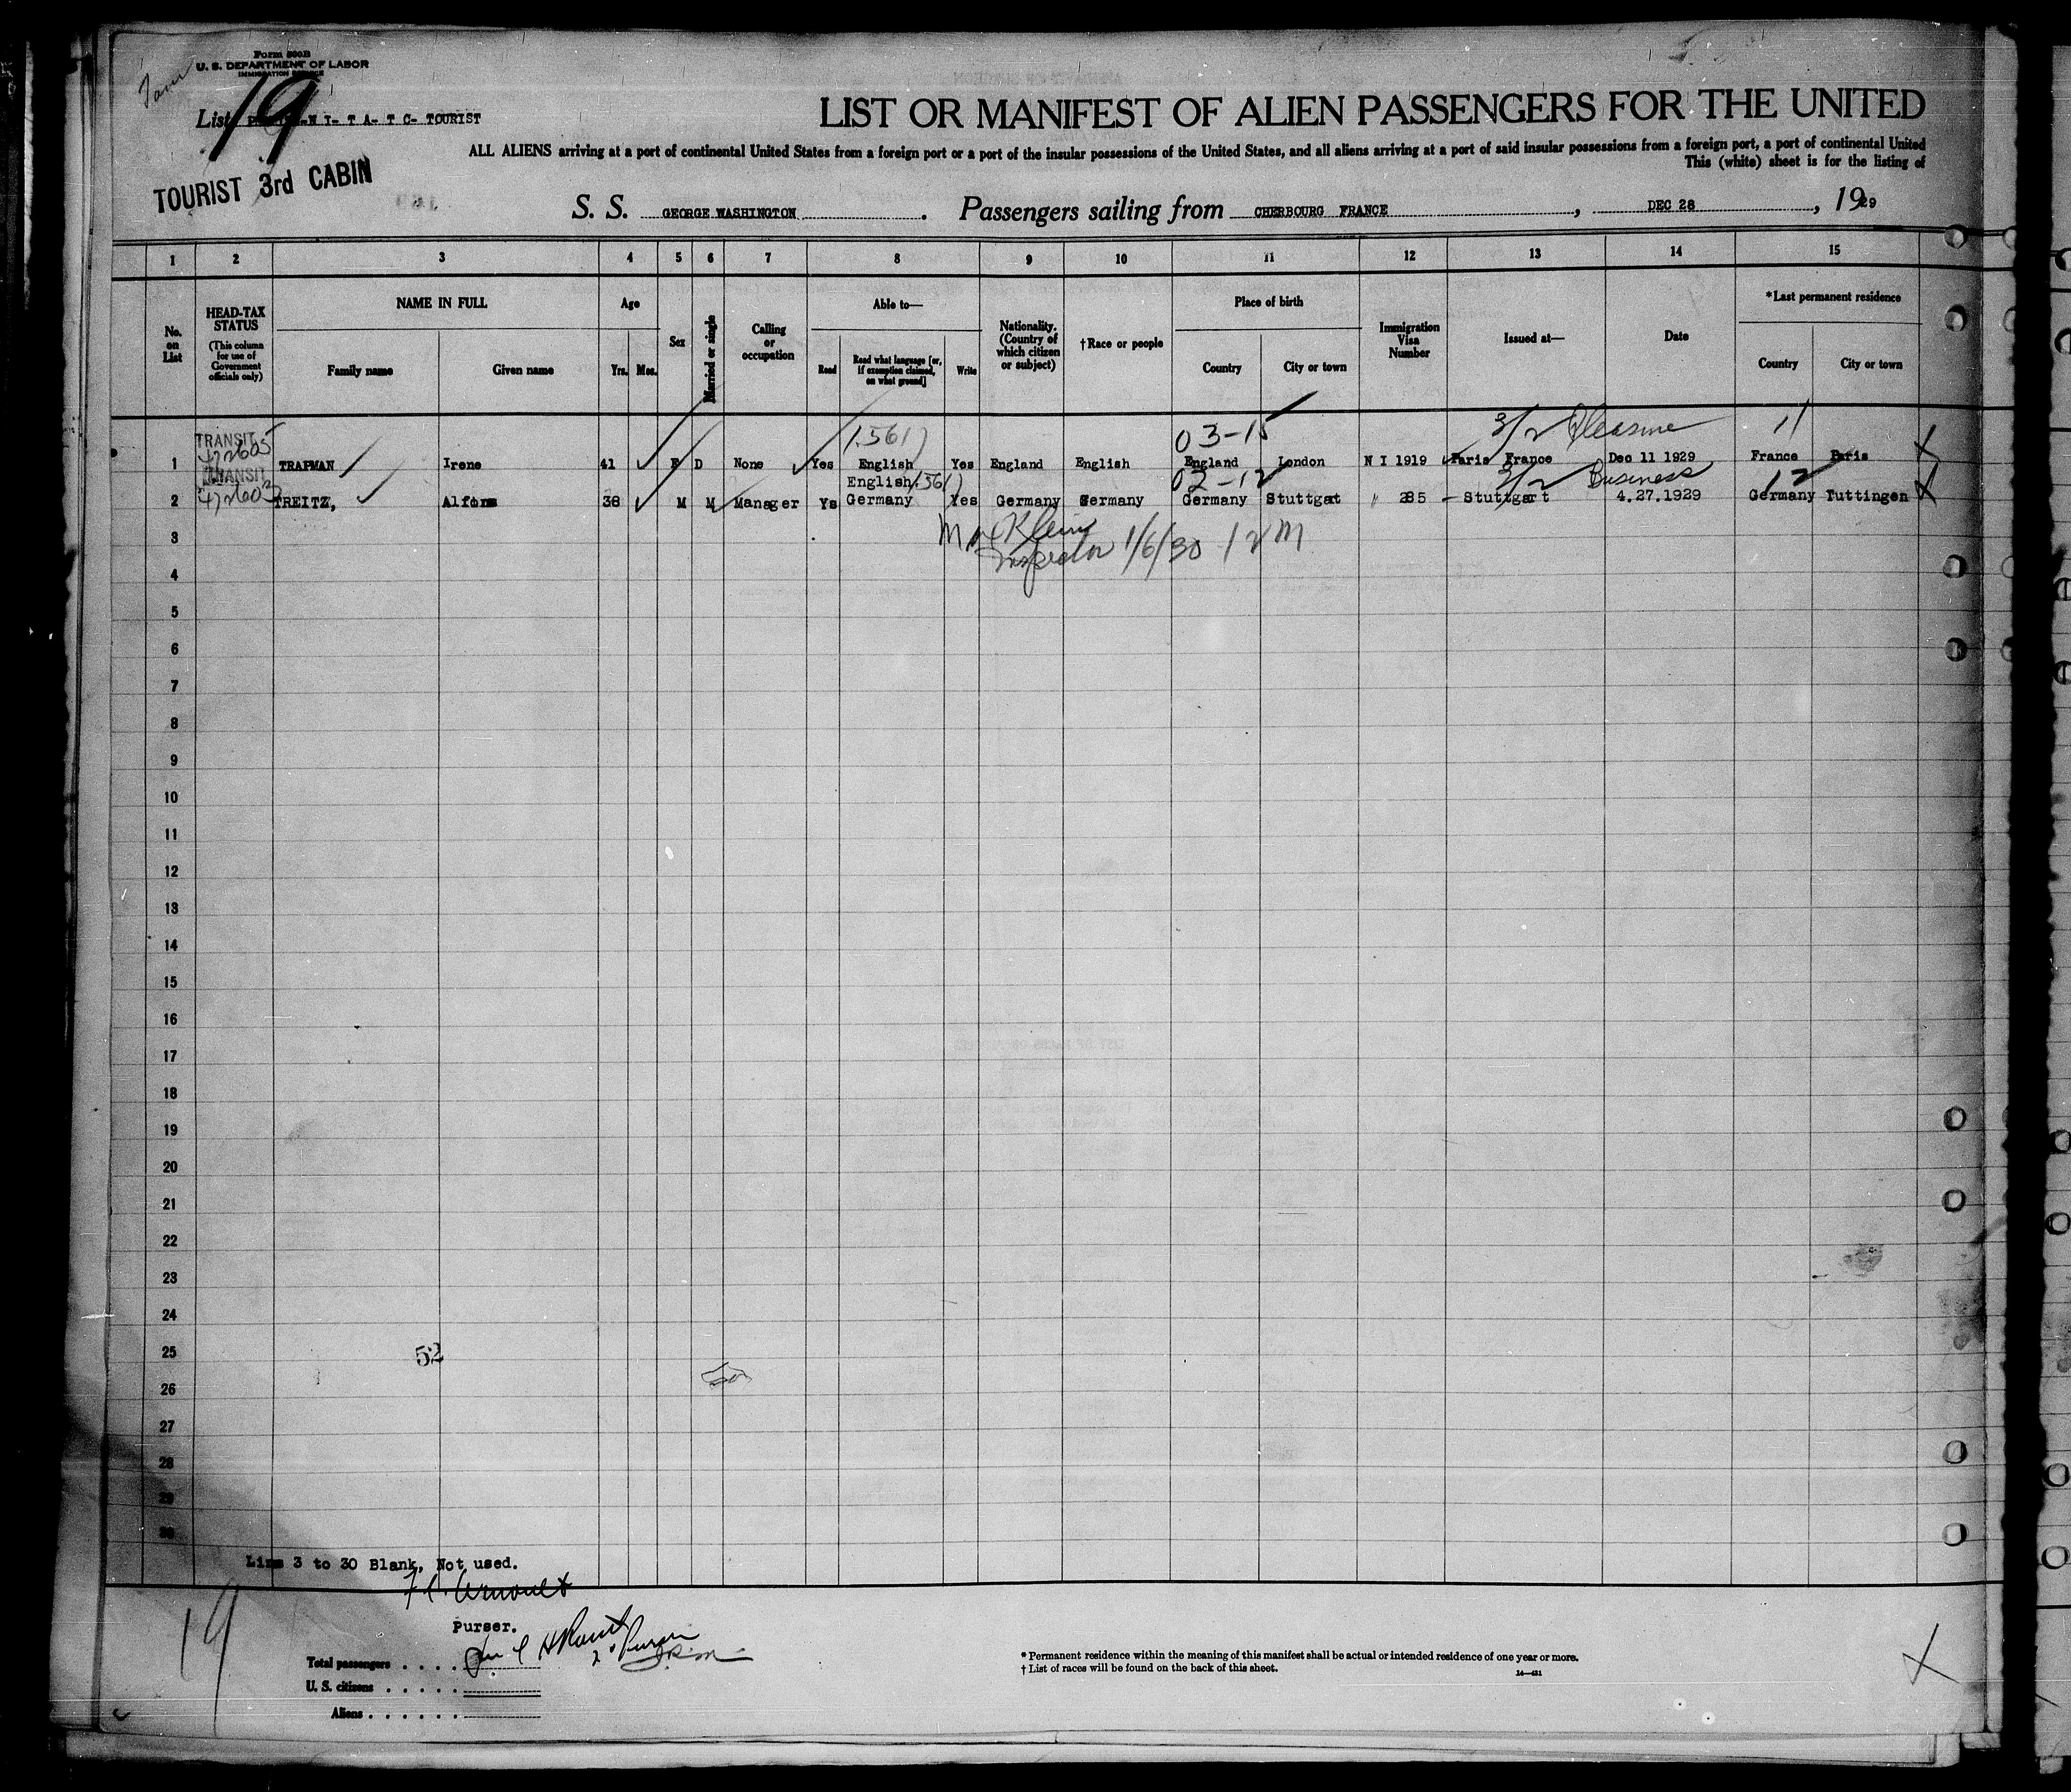 Form 500B
U. S. DEPARTMENT OF LABOR
IMMIGRATION SERVICE
List 19 N I- T A- T C- TOURIST
TOURIST 3rd CABIN
LIST OR MANIFEST OF ALIEN PASSENGERS FOR THE UNITED
ALL ALIENS arriving at a port of continental United States from a foreign port or a port of the insular possessions of the United States, and all aliens arriving at a port of said insular possessions from a foreign port, a port of continental United
This (white) sheet is for the listing of
S. S. GEORGE WASHINGTON. Passengers sailing from CHERBOURG FRANCE, DEC 28, 1929
1 2 3 4 5 6 7 8 9 10 11 12 13 14 15
No. on List
HEAD-TAX STATUS
(This column for use of Government officials only)
NAME IN FULL
Family name Given name
Age
Yrs. Mos.
Sex
Married or single
Calling or occupation
Able to—
Read
Read what language [or, if exemption claimed, on what ground]
Write
Nationality. (Country of which citizen or subject)
†Race or people
Place of birth
Country City or town
Immigration Visa Number
Issued at—
Date
*Last permanent residence
Country City or town
1561) 03-15 3/2 Pleasure 11
TRANSIT
472605
1 TRAPMAN Irene 41 F D None Yes English Yes England English England London N I 1919 Paris France Dec 11 1929 France Paris X
TRANSIT
English 1561) 02-12 3/2 Business 12
2 TREITZ, Alfons 38 M M Manager Ys Germany Yes Germany Germany Germany Stuttgat " 285 - Stuttgart 4.27.1929 Germany Tuttingen X
3
Klein
Inspector 1/6/30 12 M
4
5
6
7
8
9
10
11
12
13
14
15
16
17
18
19
20
21
22
23
24
25 52
26
27
28
29
30
Line 3 to 30 Blank, Not used.
Purser.
19
Total passengers
U. S. citizens
Aliens
2d Purser
* Permanent residence within the meaning of this manifest shall be actual or intended residence of one year or more.
† List of races will be found on the back of this sheet.
14—431
X